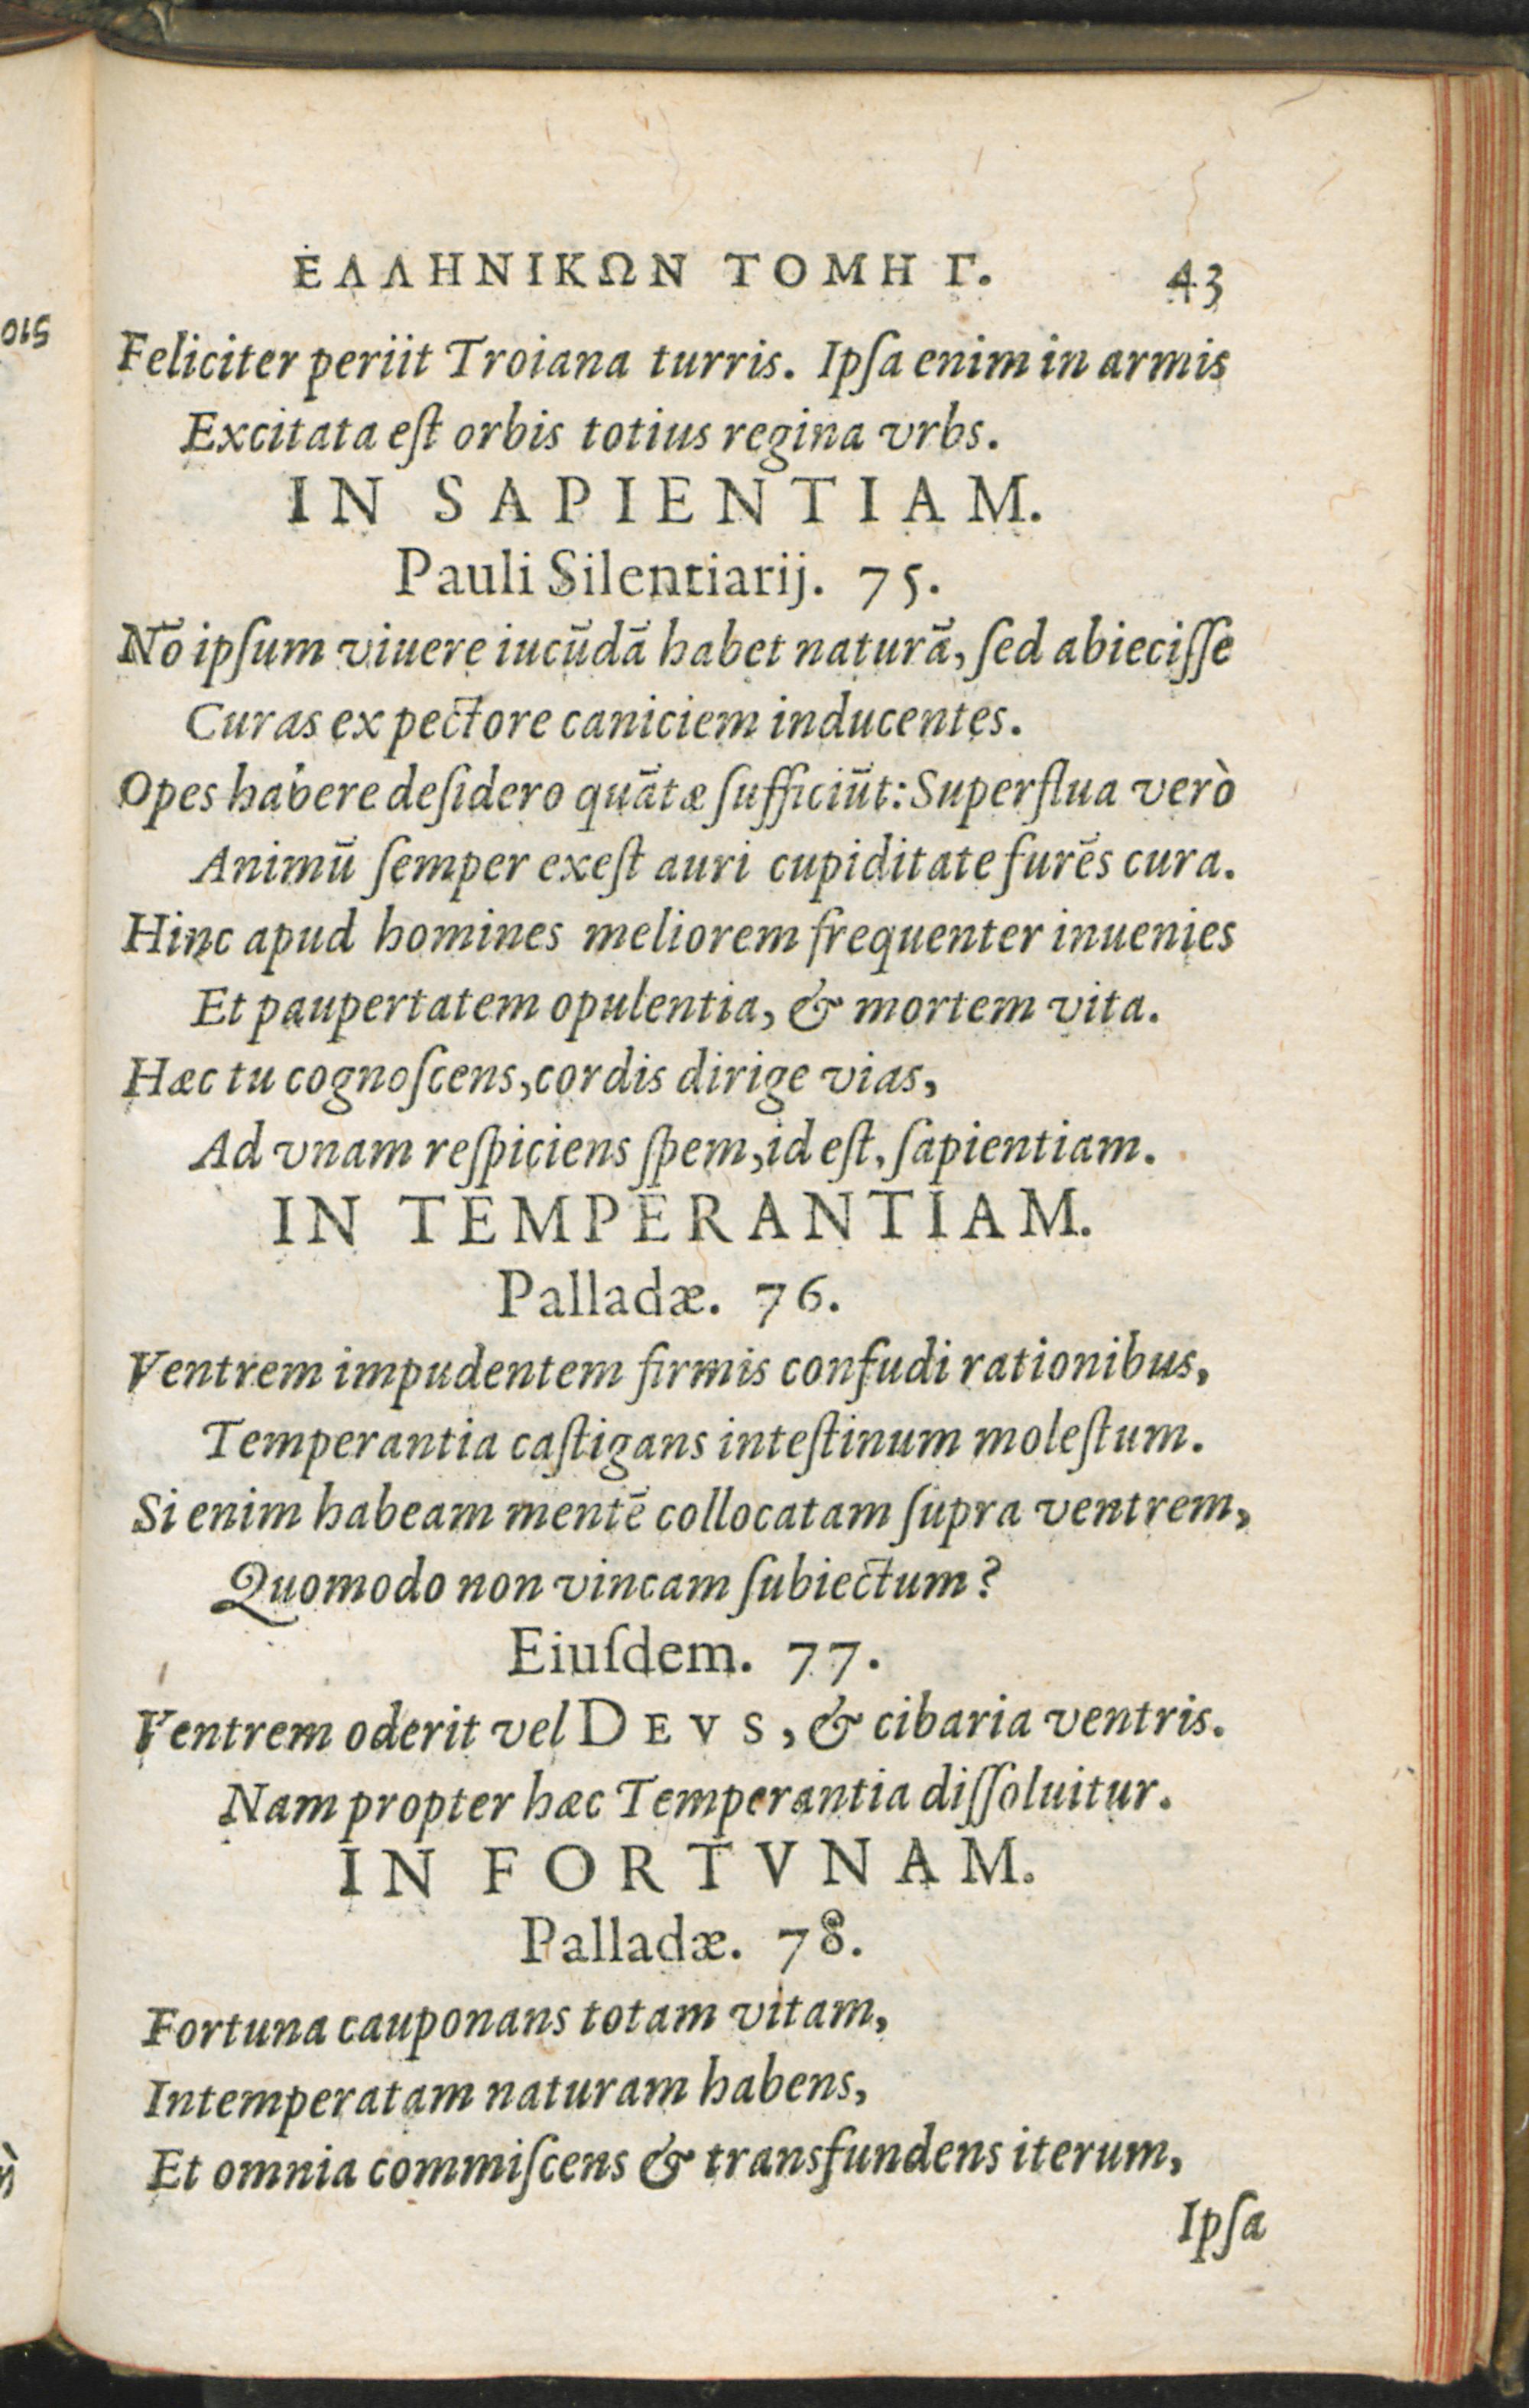 ἘΛΛΗΝΙΚΩΝ ΤΟΜΗ Γ. 43
Feliciter periit Troiana turris. Ipſa enim in armis
Excitata eſt orbis totius regina vrbs.
IN SAPIENTIAM.
Pauli Silentiarij. 75.
Nō ipſum viuere iucūdā habet naturā, ſed abieciſſe
Curas ex pectore caniciem inducentes.
Opes habere deſidero quātæ ſufficiūt: Superflua verò
Animū ſemper exeſt auri cupiditate furēs cura.
Hinc apud homines meliorem frequenter inuenies
Et paupertatem opulentia, & mortem vita.
Hæc tu cognoſcens, cordis dirige vias,
Ad vnam reſpiciens ſpem, id eſt, ſapientiam.
IN TEMPERANTIAM.
Palladæ. 76.
Ventrem impudentem firmis confudi rationibus,
Temperantia caſtigans inteſtinum moleſtum.
Si enim habeam mentē collocatam ſupra ventrem,
Quomodo non vincam ſubiectum?
Eiuſdem. 77.
Ventrem oderit vel DEVS, & cibaria ventris.
Nam propter hæc Temperantia diſſoluitur.
IN FORTVNAM.
Palladæ. 78.
Fortuna cauponans totam vitam,
Intemperatam naturam habens,
Et omnia commiſcens & transfundens iterum,
Ipſa